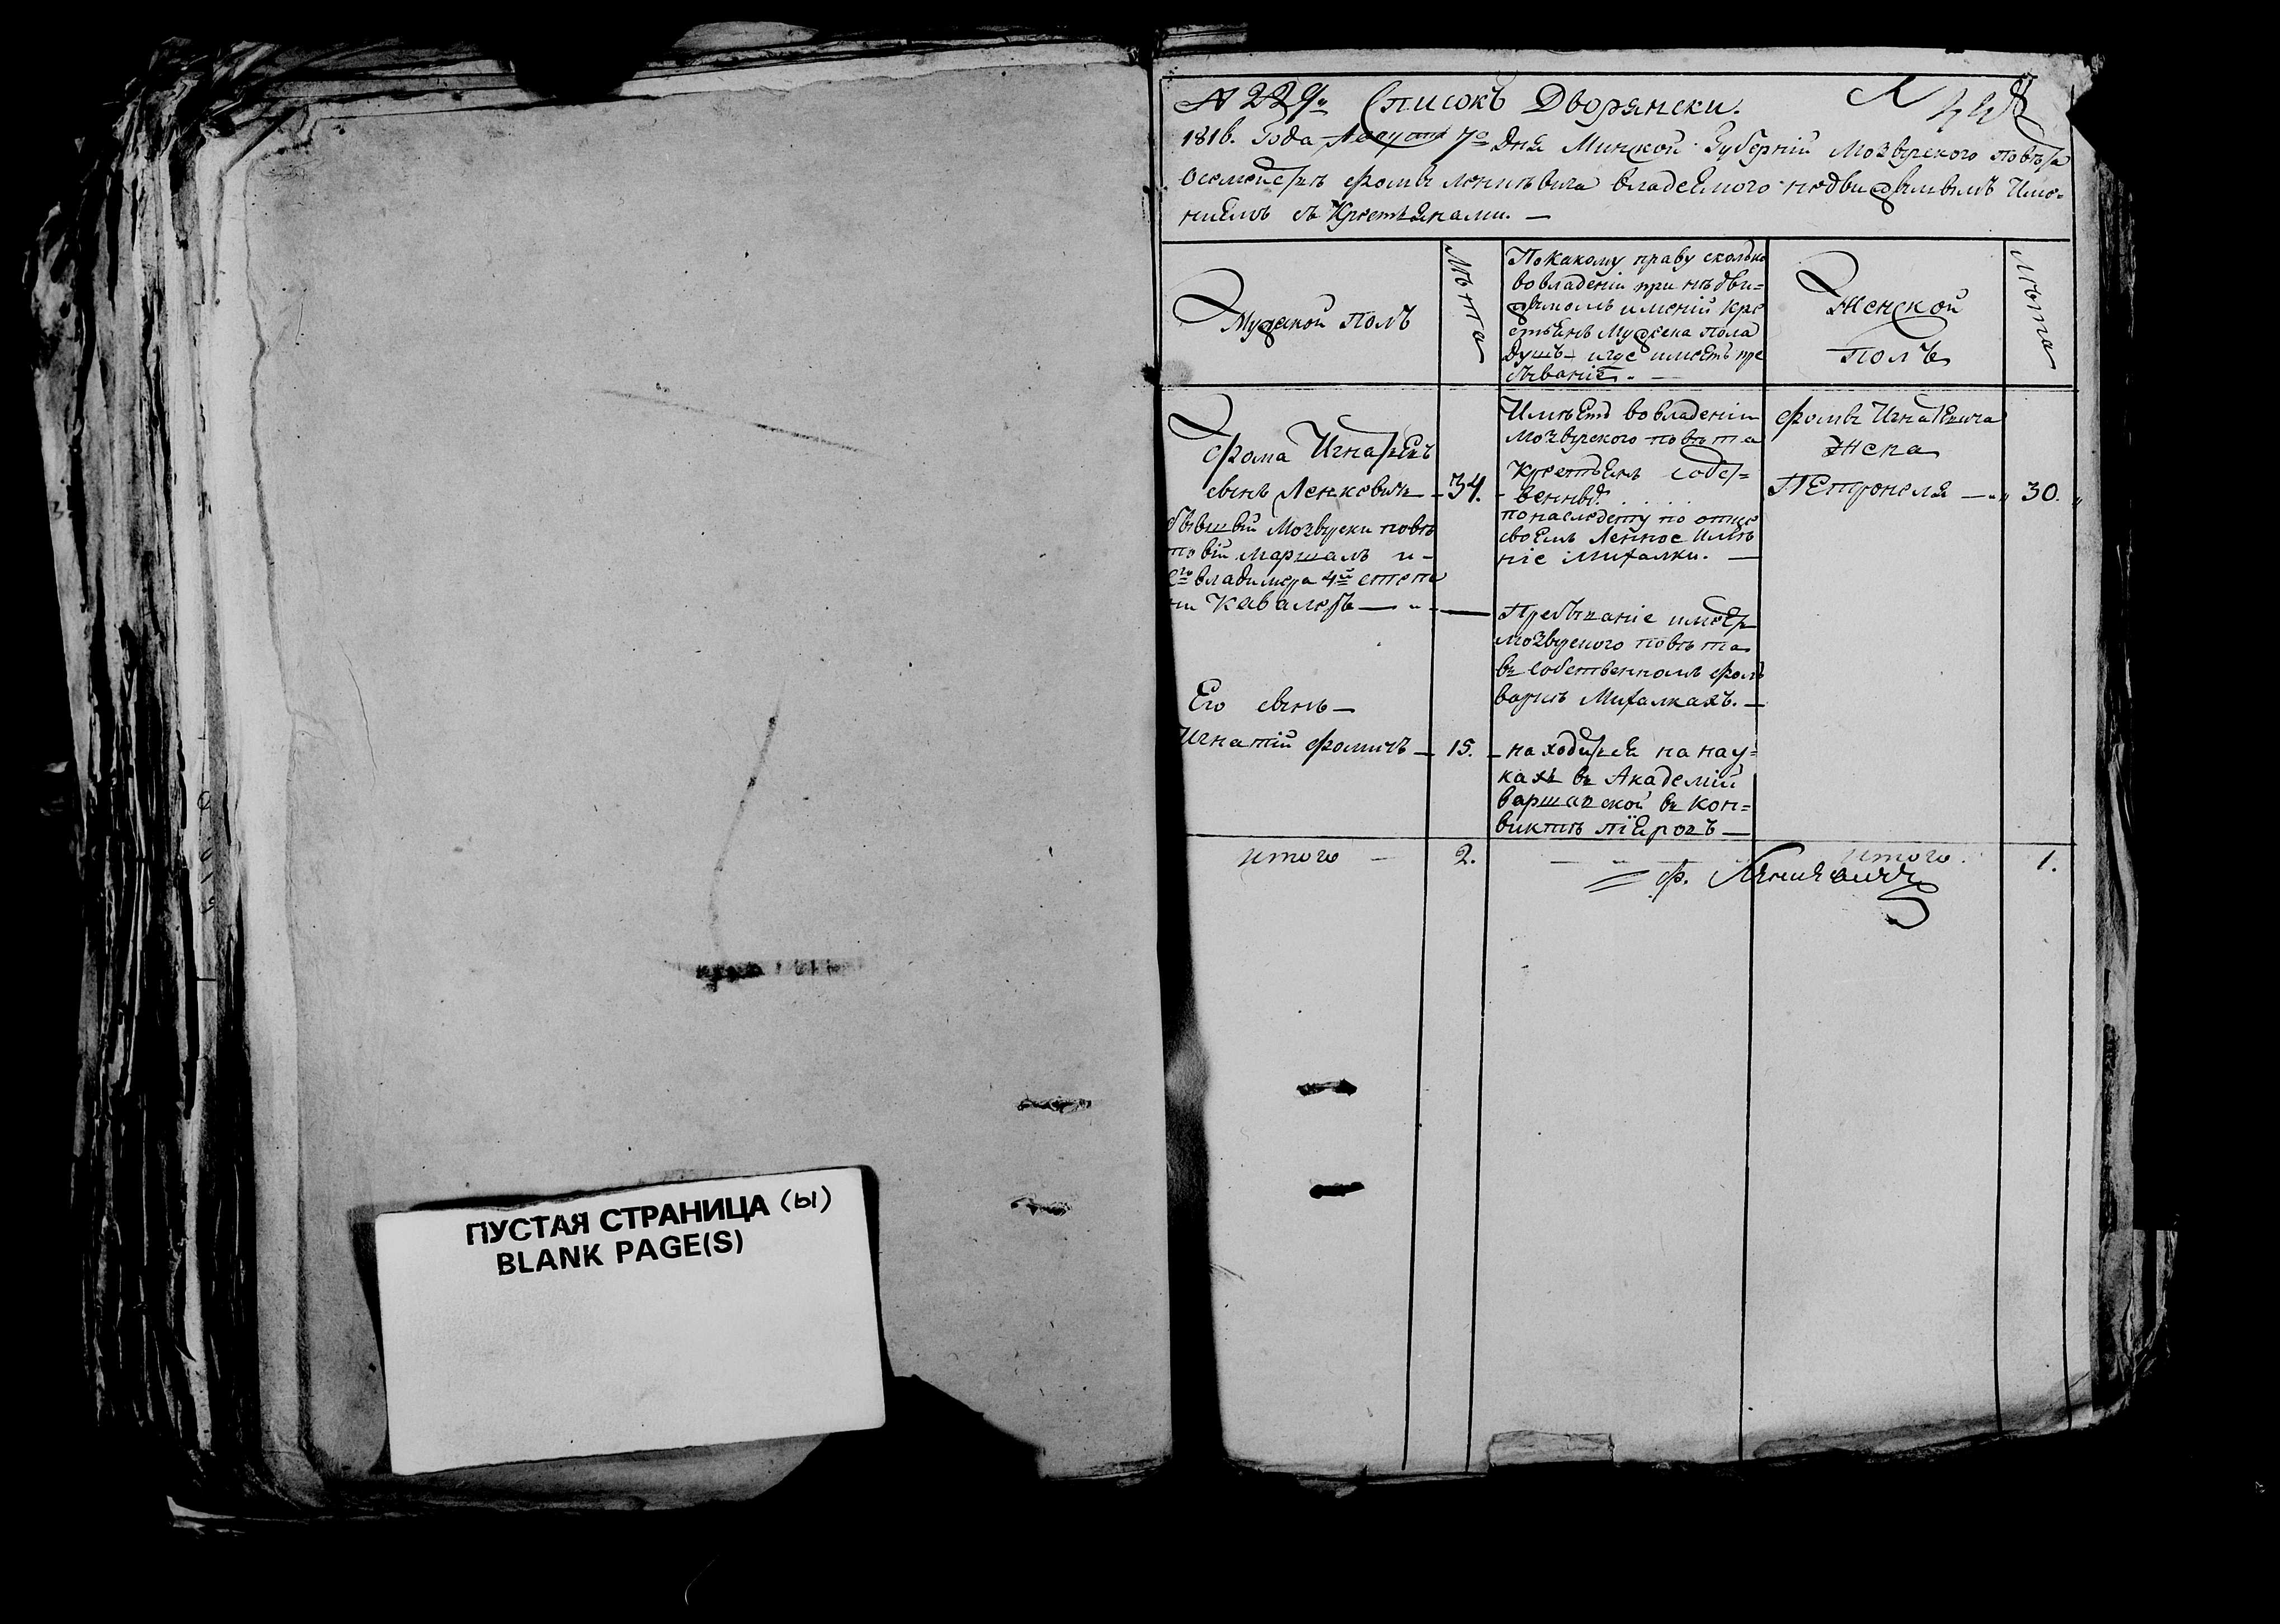 № 229. Списокъ Дворянски.
1816. Года Августа 7го Дня Минской Губерній Мозырского повѣта
Осемействѣ Фомы Ленкѣвича владеемого недвижымымъ Име-
ниемъ съ Крестьянами. —
Мужской Полъ
Лѣта
По какому праву сколько
во владеніи при недви-
жымомъ имений кре
стьянъ Мужска пола
Душъ и где иместъ пре
бываніе. —
Женской
Полъ
Лѣта
Фома Игнатіевъ
сынъ Ленкевичъ
34.
бывшый Мозырски повѣ
товій Маршалъ и
Сго владимера 4й степе
ни Кавалеръ —
Имѣетъ во владеніи
Мозырского повѣта
Крестьянъ собст-
венныхъ . . . .
по наследству по отце
своемъ Ленное Имѣ
ніе Михалки. —
Пребываніе имеетъ
Мозырского повѣта
въ собственномъ фоль
варкѣ Михалкахъ. —
Фомы Игнатіевича
Жена
Петронеля — 30.
Его сынъ —
Игнатій Фомичъ — 15.
находится на нау-
кахъ въ Академій
варшавской въ кон-
виктѣ піяровъ —
итого — 2.
итого. 1.
Ф. Ленкевичъ
ПУСТАЯ СТРАНИЦА (ы)
BLANK PAGE(S)